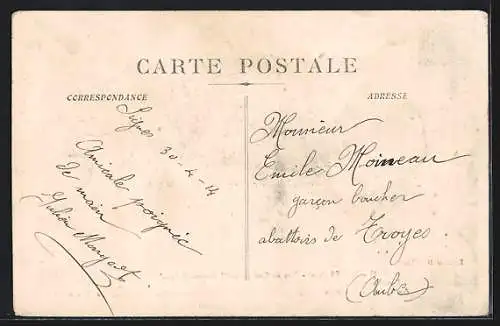 CARTE POSTALE
CORRESPONDANCE
ADRESSE
30-4-14
Amicale poignée
de main
Monsieur
Emile Moineau
garçon boucher
abattoirs de Troyes
(Aube)